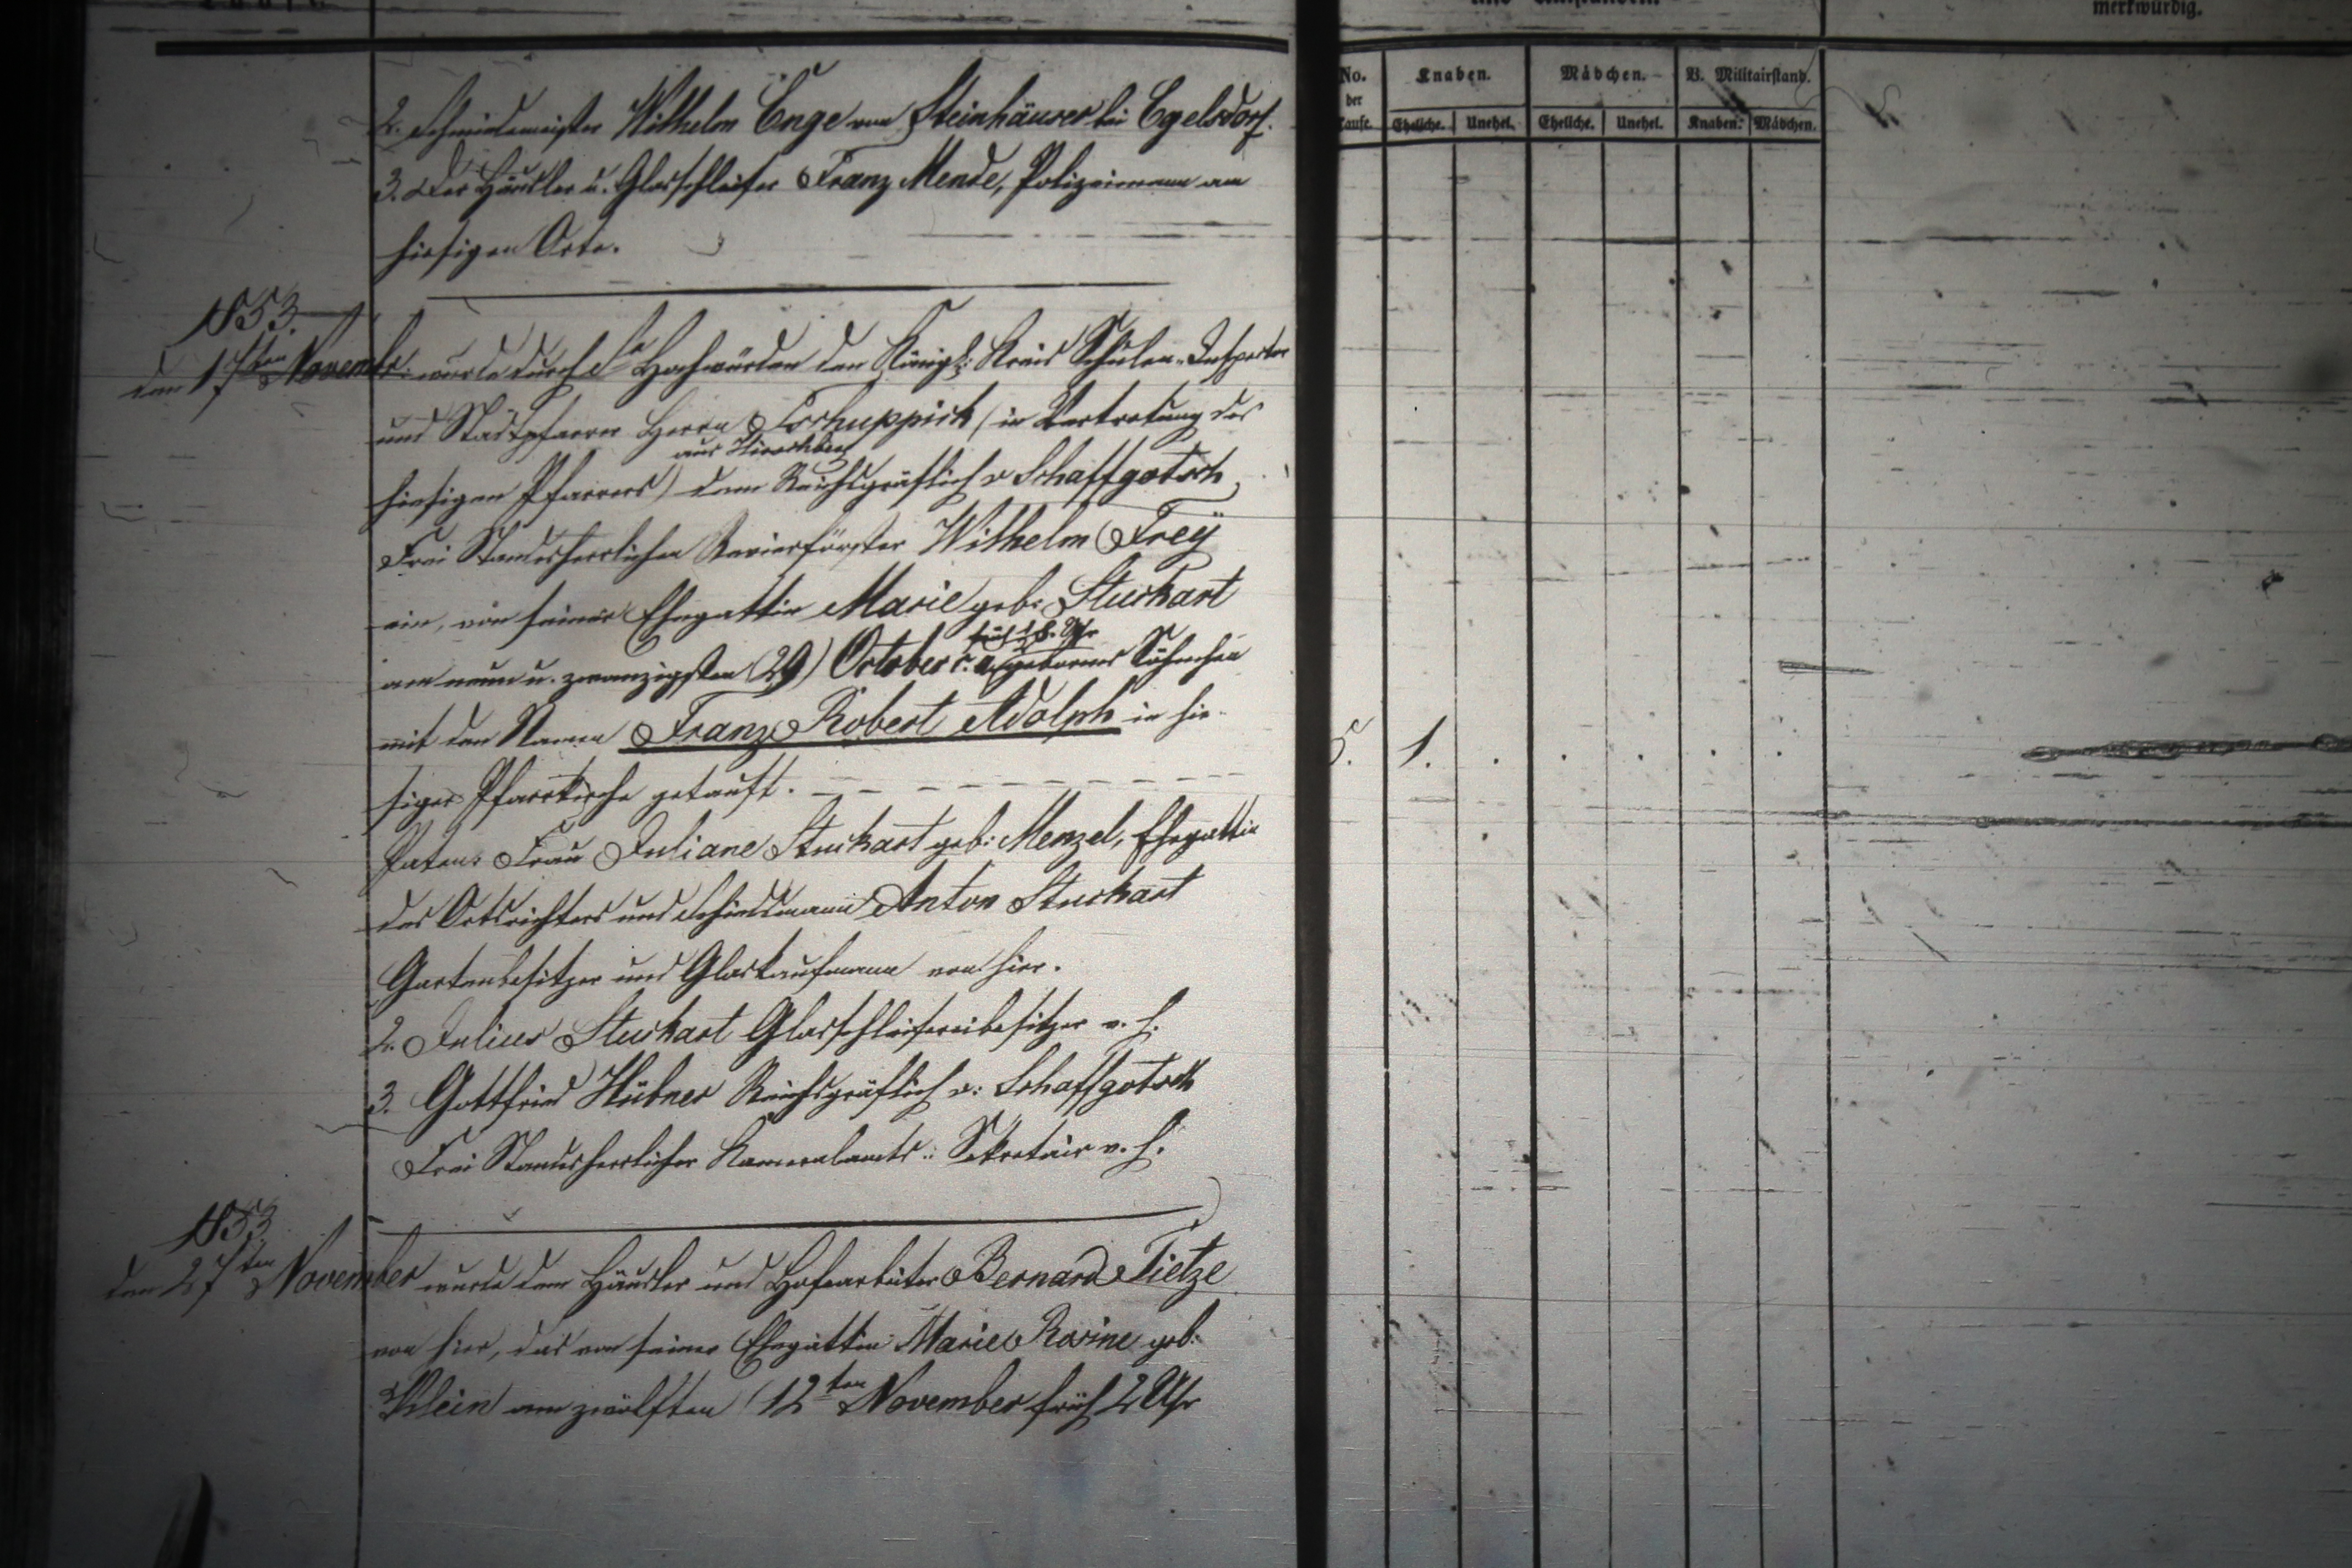 merkwürdig.
No. der Taufe.
Knaben. Mädchen. V. Militairstand.
Eheliche. Unehel. Eheliche. Unehel. Knaben. Mädchen.
2. Schmiedemeister Wilhelm Enge von Steinhäuser bei Egelsdorf.
3. Der Häusler u. Glasschleifer Franz Mende, Polizeimann am
hiesigen Orte.
1853.
den 17ten Novembr. wurde durch Sr Hochwürden den Königl: Kreis Schulen-Inspector
und Stadtpfarrer Herrn Tschuppick (in Vertretung des
aus Hirschberg
hiesigen Pfarrers) dem Reichsgräflich v Schaffgotsch
Frei Standesherrlichen Revierförster Wilhelm Freÿ
ein, von seiner Ehegattin Marie geb: Stuckart
früh Uhr
am neun u. zwanzigsten (29) October c. a. gebornes Söhnchen
mit den Namen Franz Robert Adolph in hie-
siger Pfarrkirche getauft.
5. 1. . . . . .
Paten: Frau Juliane Stuckart geb: Menzel, Ehegattin
des Ortsrichters und Schiedsmann Anton Stuckart
Gartenbesitzer und Glaskaufmann von hier.
2. Julius Stuckart Glasschleifereibesitzer v. h.
3. Gottfried Hübner Reichsgräflich v: Schaffgotsch
Frei Standesherrlicher Kameralamts: Sekretair v. h.
1853
den 27ten November wurde dem Häusler und Hofearbeiter Bernard Tietze
von hier, das von seiner Ehegattin Marie Rosine geb:
Klein am zwölften (12ten November früh 2 Uhr